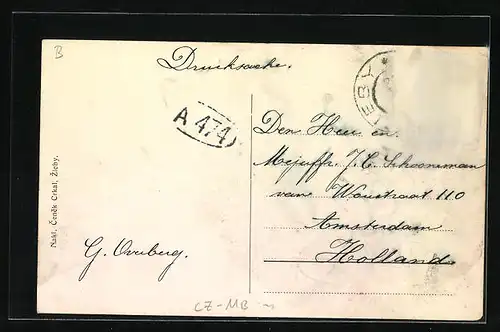 B
Drucksache.
EBY
A 474
Den Heer en
Mejuffr. J. C. Schoonman
van Woustraat 110
Amsterdam
Holland.
G. Overberg.
Nakl. Čeněk Crkal, Žleby.
CZ-MB